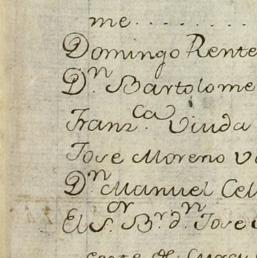 me.........
Domingo Rente
Dn. Bartolome
Franz.ca Viuda
Jose Moreno V
Dn Manuel Cel
El Sor. Br. dn. Jose